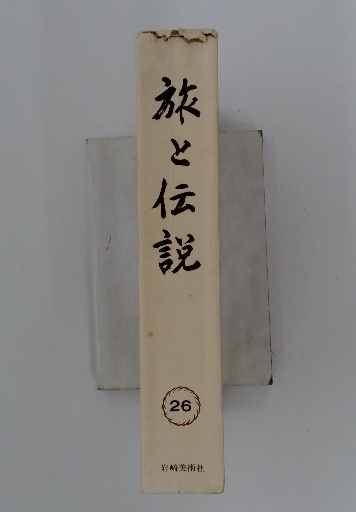 旅と伝説
26
岩崎美術社